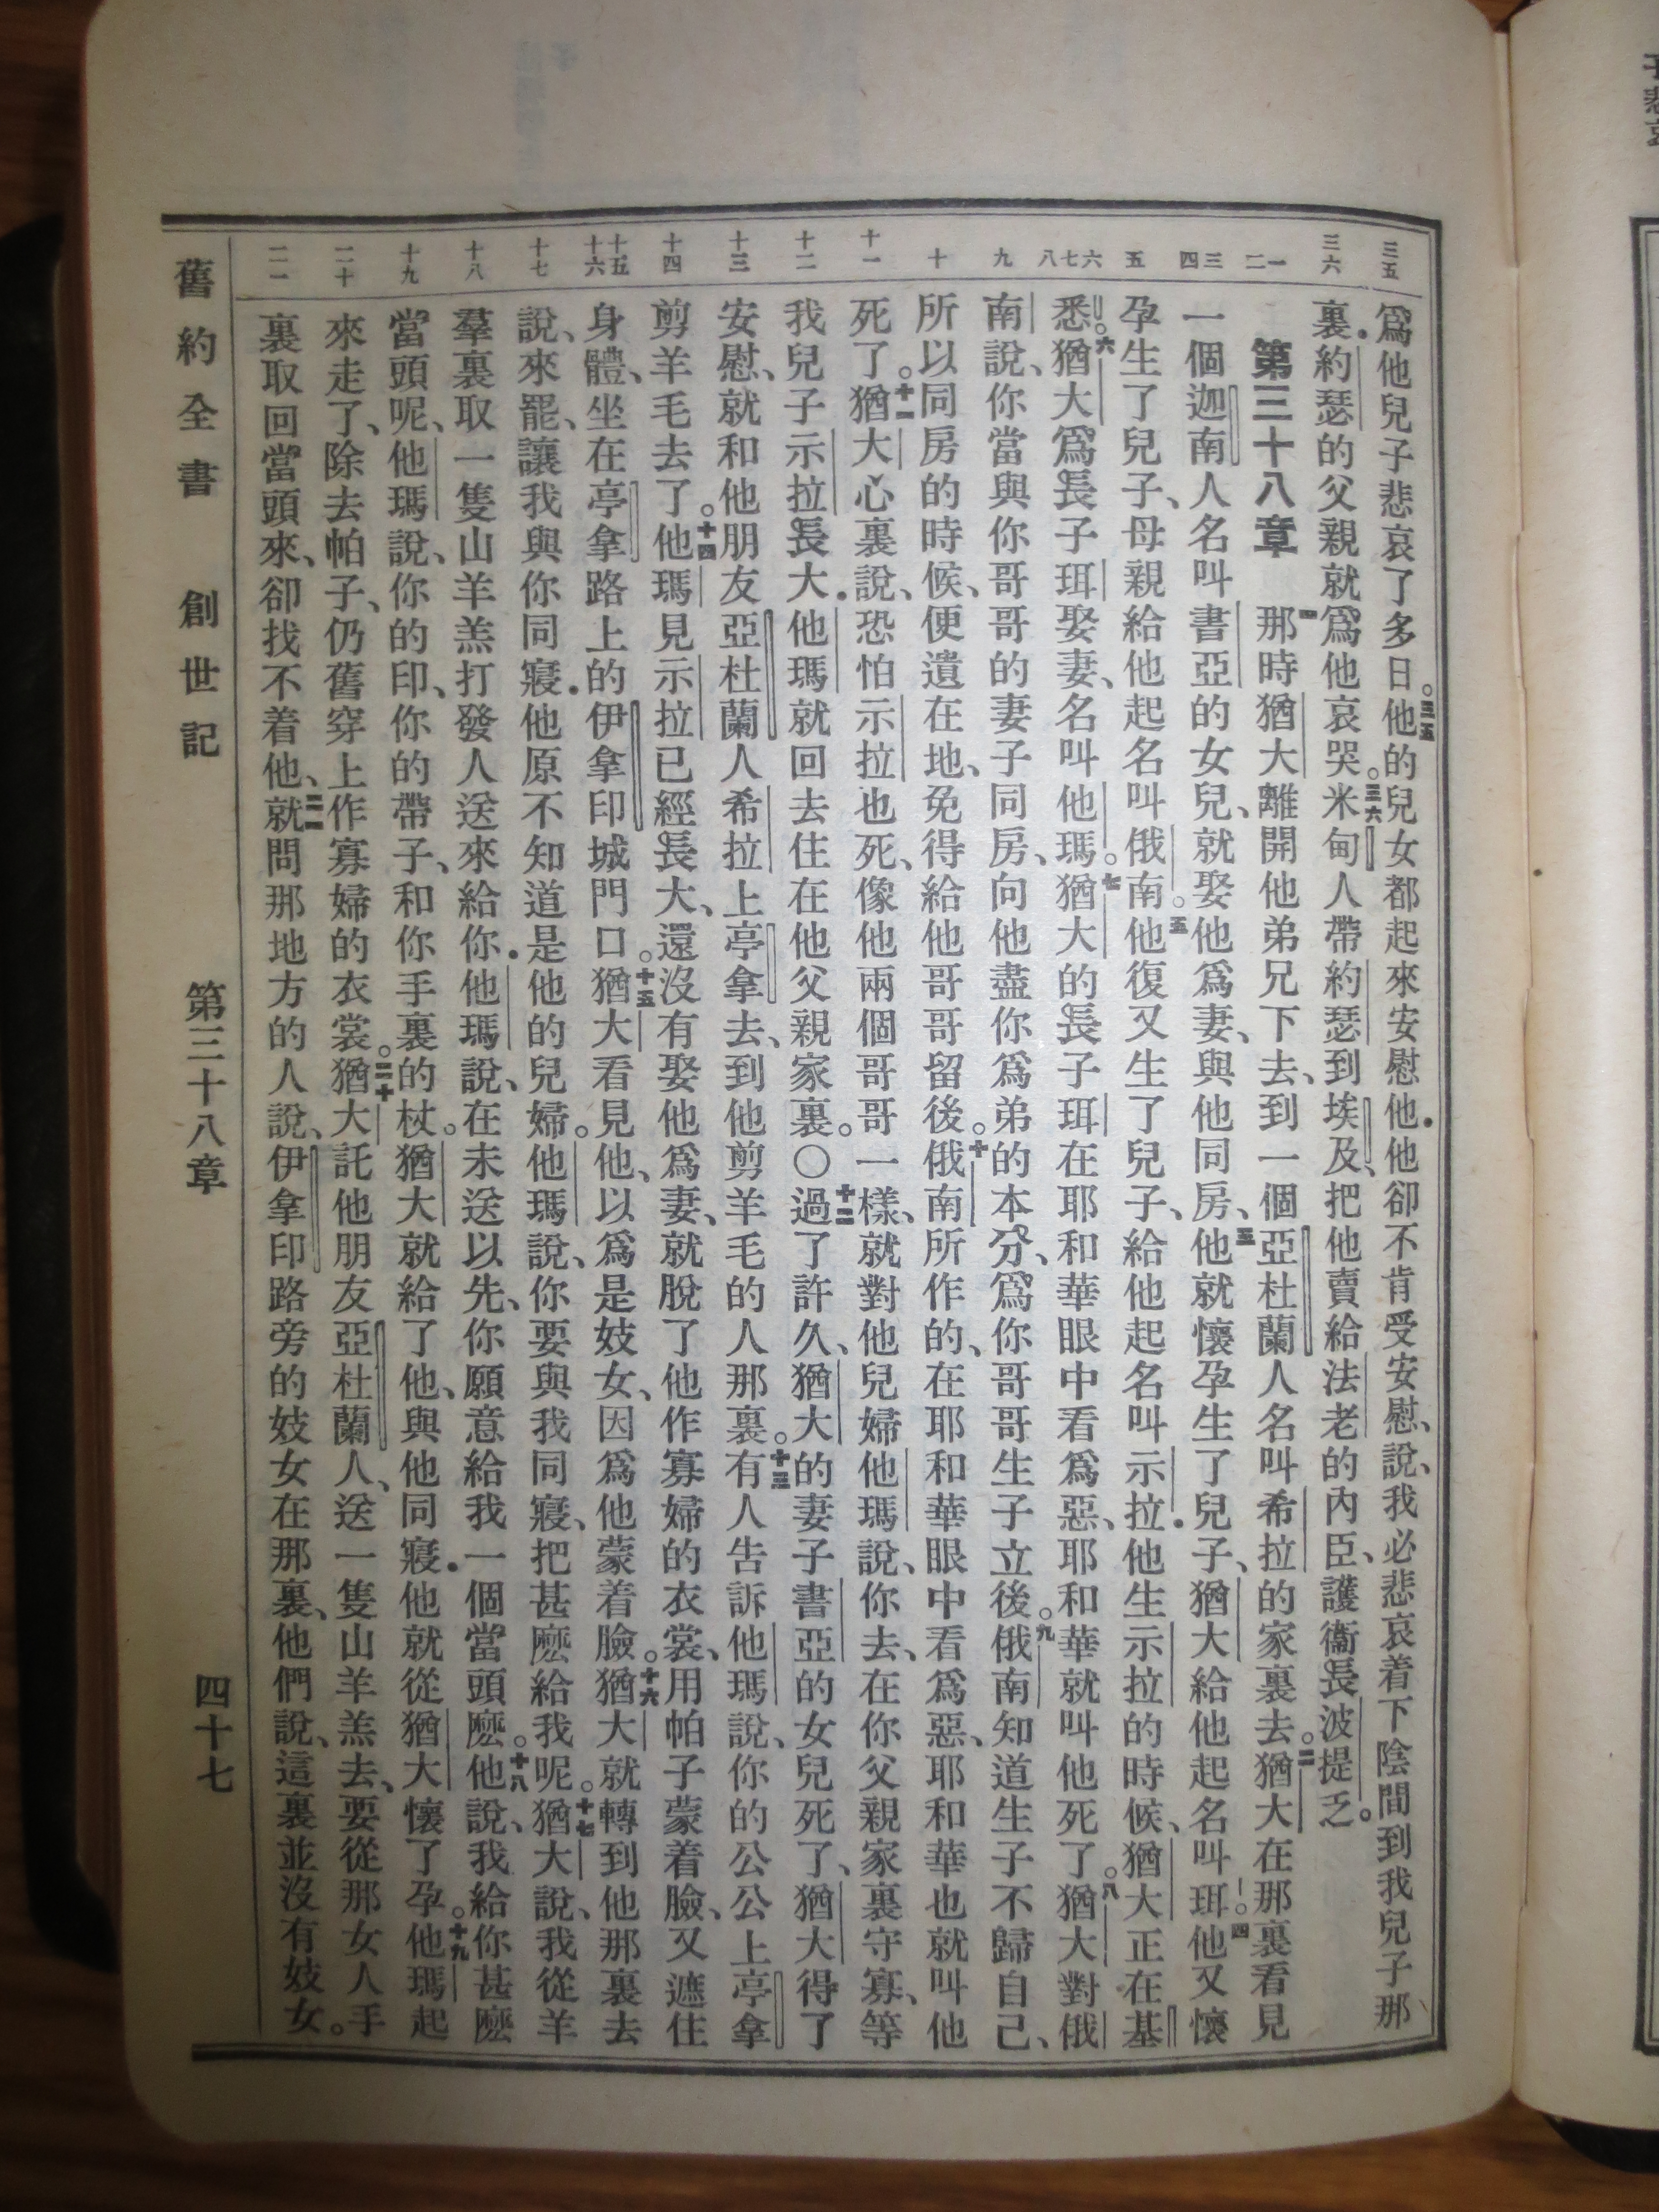 三五 三六 一 二 三 四 五 六 七 八 九 十 十一 十二 十三 十四 十五 十六 十七 十八 十九 二十 二一
爲他兒子悲哀了多日。三五他的兒女都起來安慰他．他卻不肯受安慰、說、我必悲哀着下陰間到我兒子那
裏．約瑟的父親就爲他哀哭。三六米甸人帶約瑟到埃及、把他賣給法老的內臣、護衞長波提乏。
第三十八章 一那時猶大離開他弟兄下去、到一個亞杜蘭人名叫希拉的家裏去。二猶大在那裏看見
一個迦南人名叫書亞的女兒、就娶他爲妻、與他同房、三他就懷孕生了兒子、猶大給他起名叫珥。四他又懷
孕生了兒子、母親給他起名叫俄南。五他復又生了兒子、給他起名叫示拉．他生示拉的時候、猶大正在基
悉。六猶大爲長子珥娶妻、名叫他瑪。七猶大的長子珥在耶和華眼中看爲惡、耶和華就叫他死了。八猶大對俄
南說、你當與你哥哥的妻子同房、向他盡你爲弟的本分、爲你哥哥生子立後。九俄南知道生子不歸自己、
所以同房的時候、便遺在地、免得給他哥哥留後。十俄南所作的、在耶和華眼中看爲惡、耶和華也就叫他
死了。十一猶大心裏說、恐怕示拉也死、像他兩個哥哥一樣、就對他兒婦他瑪說、你去、在你父親家裏守寡、等
我兒子示拉長大．他瑪就回去住在他父親家裏。〇十二過了許久、猶大的妻子書亞的女兒死了、猶大得了
安慰、就和他朋友亞杜蘭人希拉上亭拿去、到他剪羊毛的人那裏。十三有人告訴他瑪說、你的公公上亭拿
剪羊毛去了。十四他瑪見示拉已經長大、還沒有娶他爲妻、就脫了他作寡婦的衣裳、用帕子蒙着臉、又遮住
身體、坐在亭拿路上的伊拿印城門口。十五猶大看見他、以爲是妓女、因爲他蒙着臉。十六猶大就轉到他那裏去
說、來罷、讓我與你同寢．他原不知道是他的兒婦。他瑪說、你要與我同寢、把甚麽給我呢。十七猶大說、我從羊
羣裏取一隻山羊羔打發人送來給你．他瑪說、在未送以先、你願意給我一個當頭麽。十八他說、我給你甚麽
當頭呢、他瑪說、你的印、你的帶子、和你手裏的杖。猶大就給了他、與他同寢．他就從猶大懷了孕。十九他瑪起
來走了、除去帕子、仍舊穿上作寡婦的衣裳。二十猶大託他朋友亞杜蘭人、送一隻山羊羔去、要從那女人手
裏取回當頭來、卻找不着他、二一就問那地方的人說、伊拿印路旁的妓女在那裏、他們說、這裏並沒有妓女。
舊約全書 創世記 第三十八章 四十七